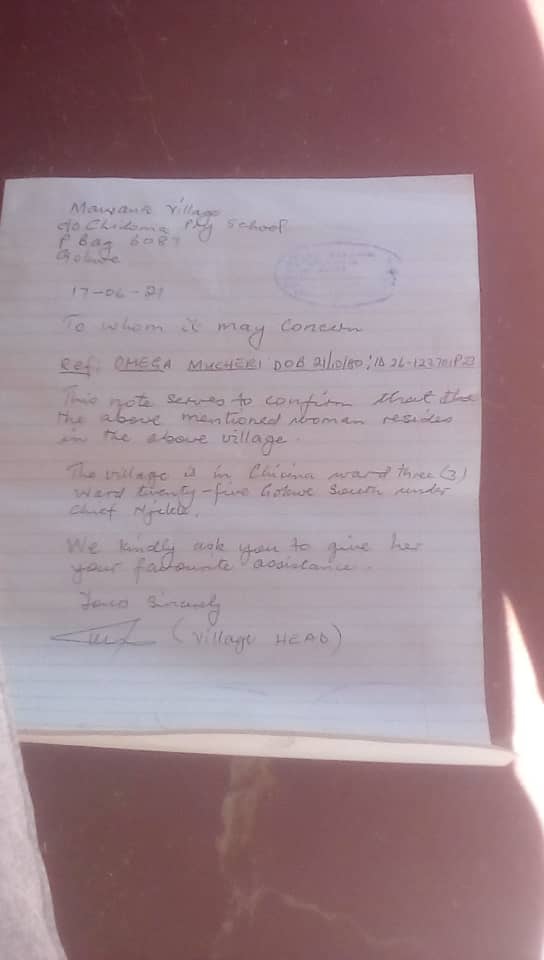 Village
c/o Chidoma Pry School
P Bag 6087
Gokwe
17-06-21
To whom it may Concern
Ref: OMEGA MUCHERI DOB 21/10/80; ID 26-123701P23
This note serves to confirm that the
the above mentioned woman resides
in the above village.
The village is in ward three (3)
Ward twenty-five Gokwe South under
Chief Njelele.
We kindly ask you to give her
your favourite assistance.
Yours Sincerely
(Village HEAD)